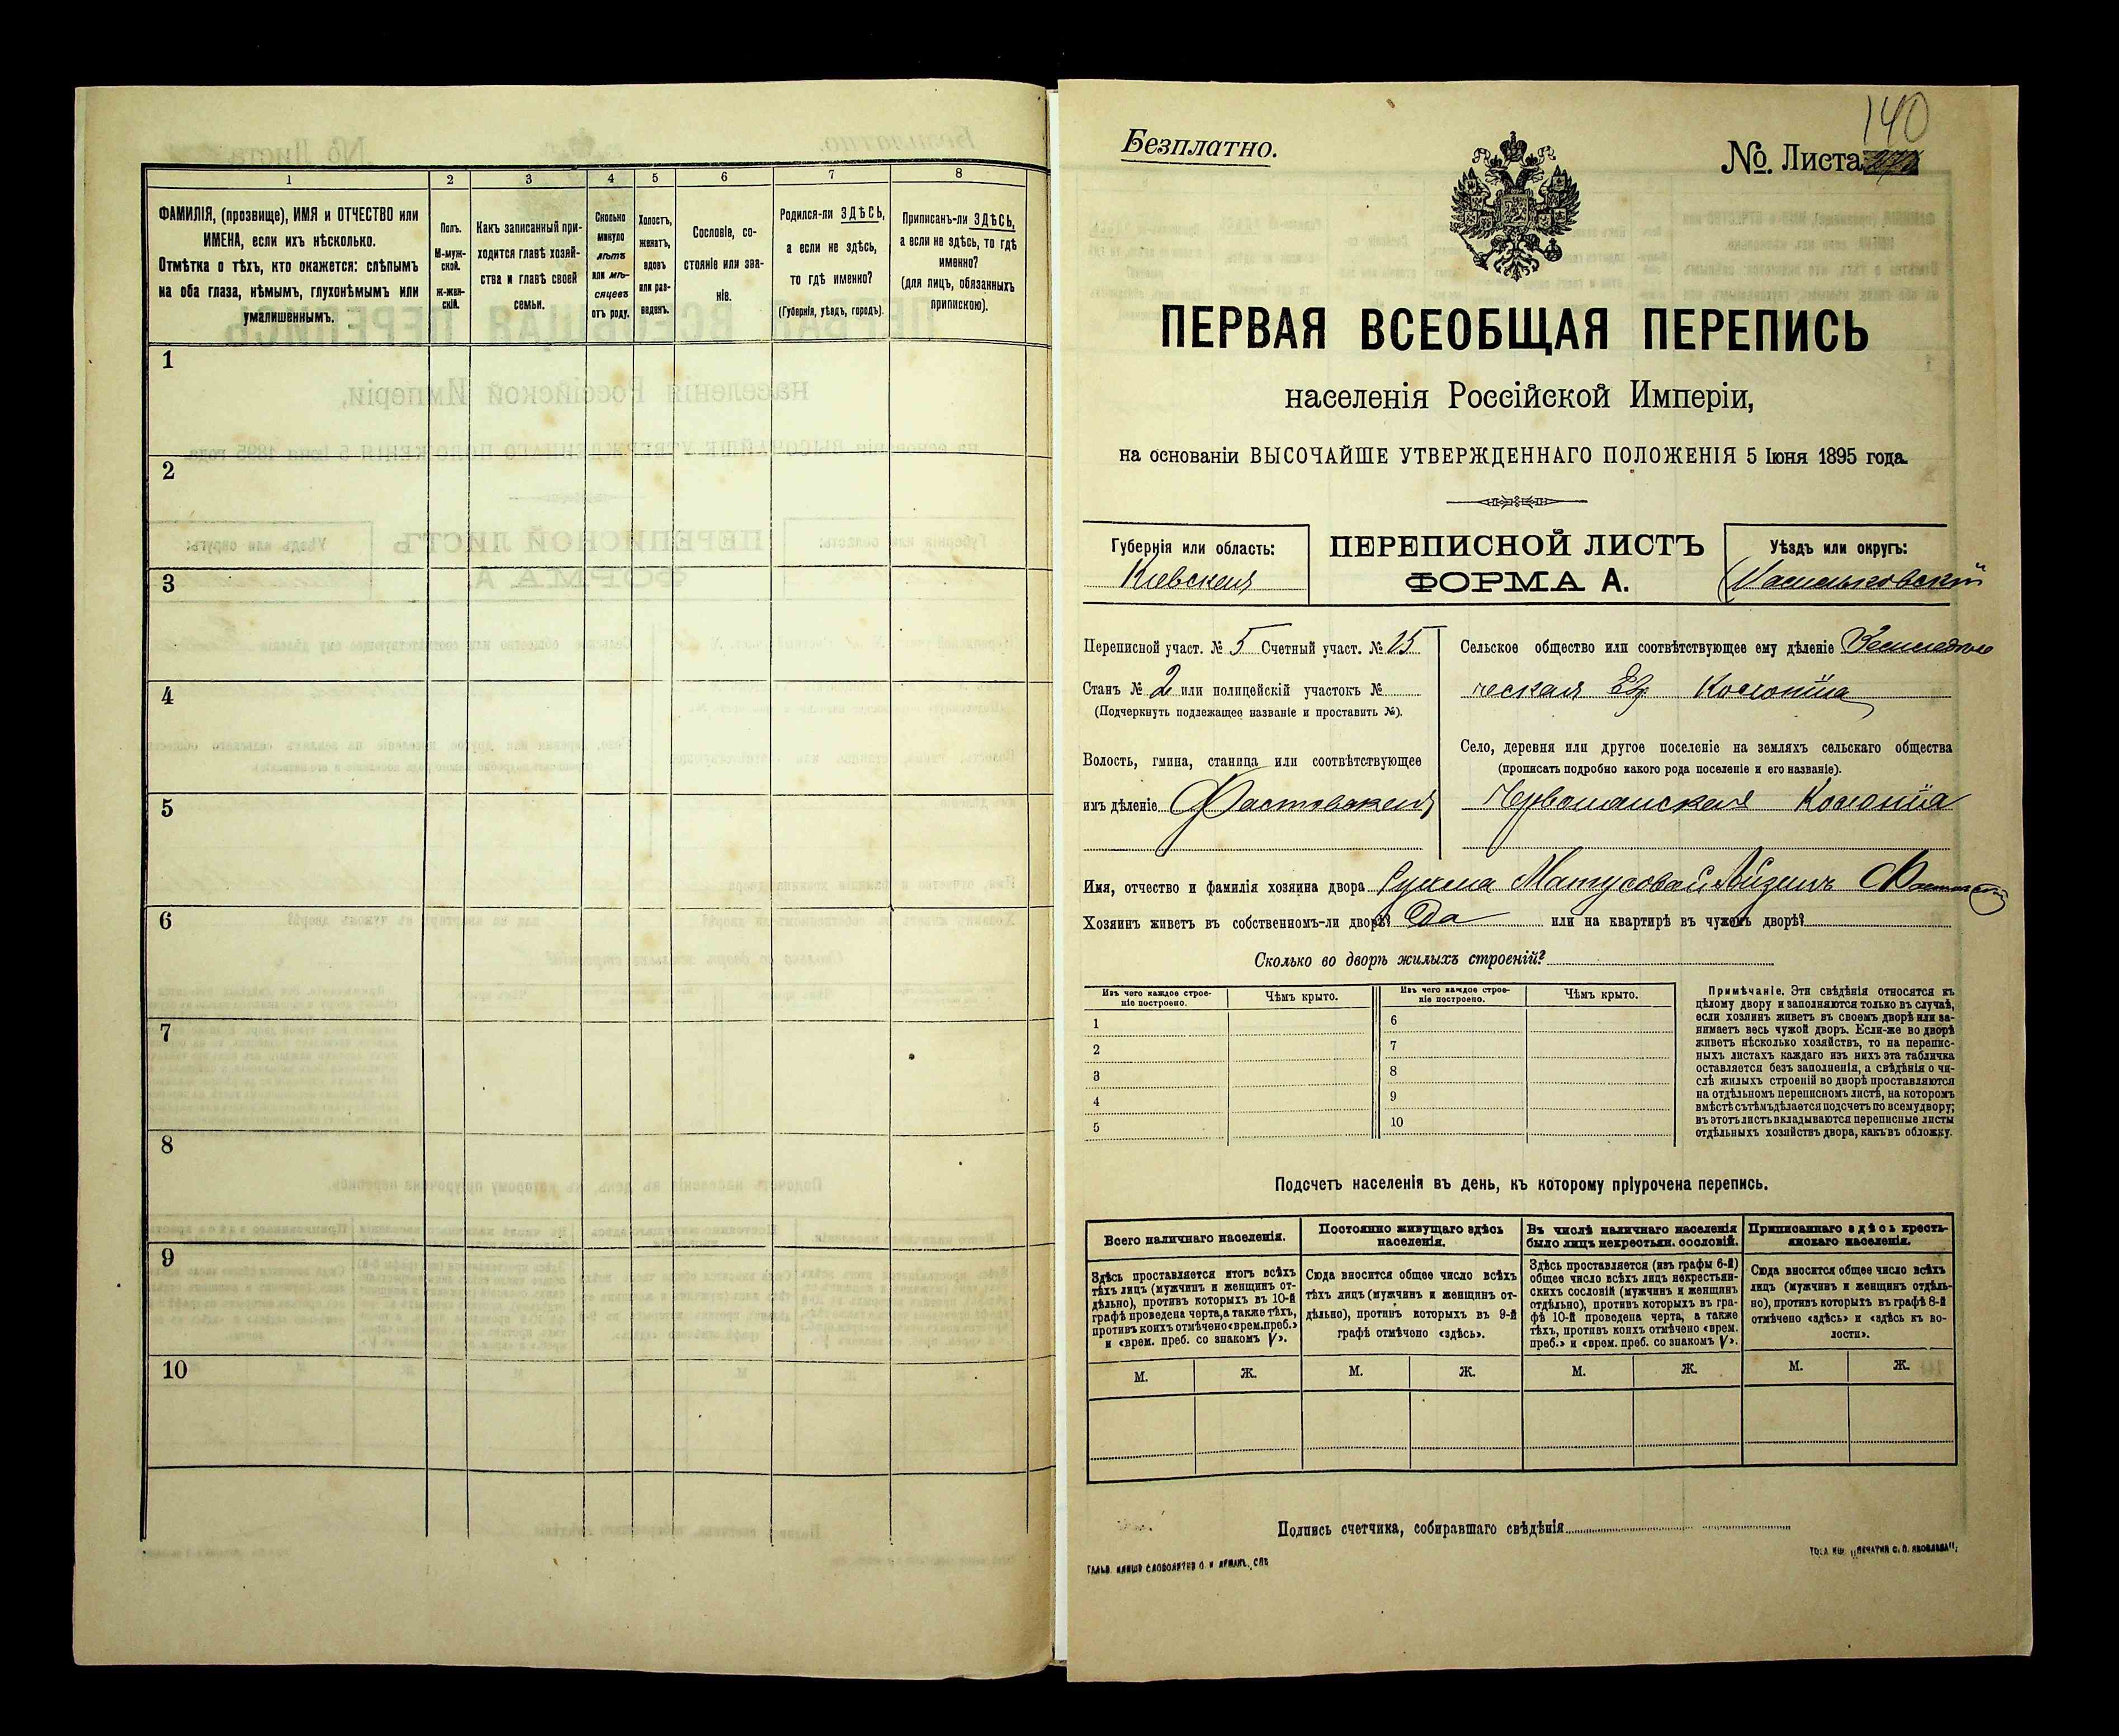 1 2 3 4 5 6 7 8
ФАМИЛІЯ, (прозвище), ИМЯ и ОТЧЕСТВО или
ИМЕНА, если ихъ нѣсколько.
Отмѣтка о тѣхъ, кто окажется: слѣпымъ
на оба глаза, нѣмымъ, глухонѣмымъ или
умалишеннымъ.
Полъ.
М-муж-
ской.
Ж-жен-
скій.
Какъ записанный при-
ходится главѣ хозяй-
ства и главѣ своей
семьи.
Сколько
минуло
лѣтъ
или мѣ-
сяцевъ
отъ роду.
Холостъ,
женатъ,
вдовъ
или раз-
веденъ.
Сословіе, со-
стояніе или зва-
ніе.
Родился-ли ЗДѢСЬ,
а если не здѣсь,
то гдѣ именно?
(Губернія, уѣздъ, городъ).
Приписанъ-ли ЗДѢСЬ,
а если не здѣсь, то гдѣ
именно?
(для лицъ, обязанныхъ
припискою).
1
2
3
4
5
6
7
8
9
10
140
Безплатно.
№. Листа
ПЕРВАЯ ВСЕОБЩАЯ ПЕРЕПИСЬ
населенія Россійской Имперіи,
на основаніи ВЫСОЧАЙШЕ УТВЕРЖДЕННАГО ПОЛОЖЕНІЯ 5 Іюня 1895 года.
Губернія или область:
Кіевская
ПЕРЕПИСНОЙ ЛИСТЪ
ФОРМА А.
Уѣздъ или округъ:
Васильковскій
Переписной участ. № 5 Счетный участ. № 15
Станъ № 2 или полицейскій участокъ №
(Подчеркнуть подлежащее названіе и проставить №).
Волость, гмина, станица или соотвѣтствующее
имъ дѣленіе Фастовская
Сельское общество или соотвѣтствующее ему дѣленіе Земледѣль
ческая Ев. Колонія
Село, деревня или другое поселеніе на земляхъ сельскаго общества
(прописать подробно какого рода поселеніе и его названіе).
Червлянская Колонія
Имя, отчество и фамилія хозяина двора Матусова
Хозяинъ живетъ въ собственномъ-ли дворѣ? Да или на квартирѣ въ чужомъ дворѣ?
Сколько во дворѣ жилыхъ строеній?
Изъ чего каждое строе-
ніе построено.
Чѣмъ крыто.
Изъ чего каждое строе-
ніе построено.
Чѣмъ крыто.
1 6
2 7
3 8
4 9
5 10
Примѣчаніе. Эти свѣдѣнія относятся къ
цѣлому двору и заполняются только въ случаѣ,
если хозяинъ живетъ въ своемъ дворѣ или за-
нимаетъ весь чужой дворъ. Если-же во дворѣ
живетъ нѣсколько хозяйствъ, то на перепис-
ныхъ листахъ каждаго изъ нихъ эта табличка
оставляется безъ заполненія, а свѣдѣнія о чи-
слѣ жилыхъ строеній во дворѣ проставляются
на отдѣльномъ переписномъ листѣ, на которомъ
вмѣстѣ съ тѣмъ дѣлается подсчетъ по всему двору;
въ этотъ листъ вкладываются переписные листы
отдѣльныхъ хозяйствъ двора, какъ въ обложку.
Подсчетъ населенія въ день, къ которому пріурочена перепись.
Всего наличнаго населенія.
Постоянно живущаго здѣсь
населенія.
Въ числѣ наличнаго населенія
было лицъ некрестьян. сословій.
Приписаннаго здѣсь кресть-
янскаго населенія.
Здѣсь проставляется итогъ всѣхъ
тѣхъ лицъ (мужчинъ и женщинъ от-
дѣльно), противъ которыхъ въ 10-й
графѣ проведена черта, а также тѣхъ,
противъ коихъ отмѣчено «врем. преб.»
и «врем. преб. со знакомъ V».
Сюда вносится общее число всѣхъ
тѣхъ лицъ (мужчинъ и женщинъ от-
дѣльно), противъ которыхъ въ 9-й
графѣ отмѣчено «здѣсь».
Здѣсь проставляется (изъ графы 6-й)
общее число всѣхъ лицъ некрестьян-
скихъ сословій (мужчинъ и женщинъ
отдѣльно), противъ которыхъ въ гра-
фѣ 10-й проведена черта, а также
тѣхъ, противъ коихъ отмѣчено «врем.
преб.» и «врем. преб. со знакомъ V».
Сюда вносится общее число всѣхъ
лицъ (мужчинъ и женщинъ отдѣль-
но), противъ которыхъ въ графѣ 8-й
отмѣчено «здѣсь» и «здѣсь къ во-
лости».
М. Ж. М. Ж. М. Ж. М. Ж.
Подпись счетчика, собиравшаго свѣдѣнія